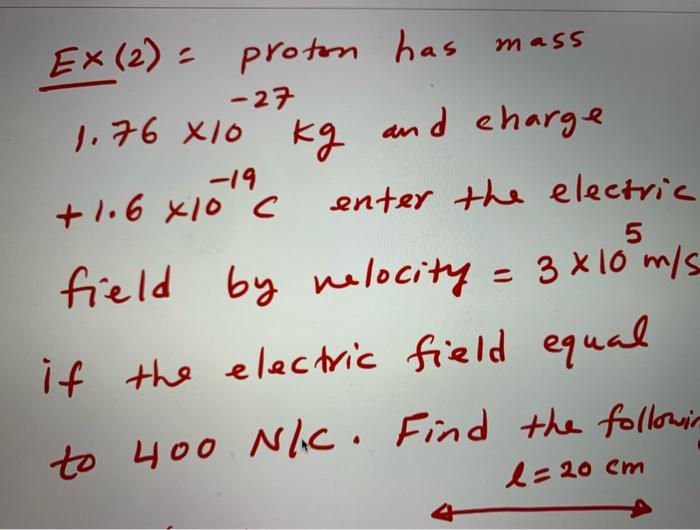 Ex (2) = proton has mass
1.76 x10^-27 kg and charge
+1.6 x10^-19 C enter the electric
field by velocity = 3 x10^5 m/s
if the electric field equal
to 400 N/C. Find the followin
l = 20 cm